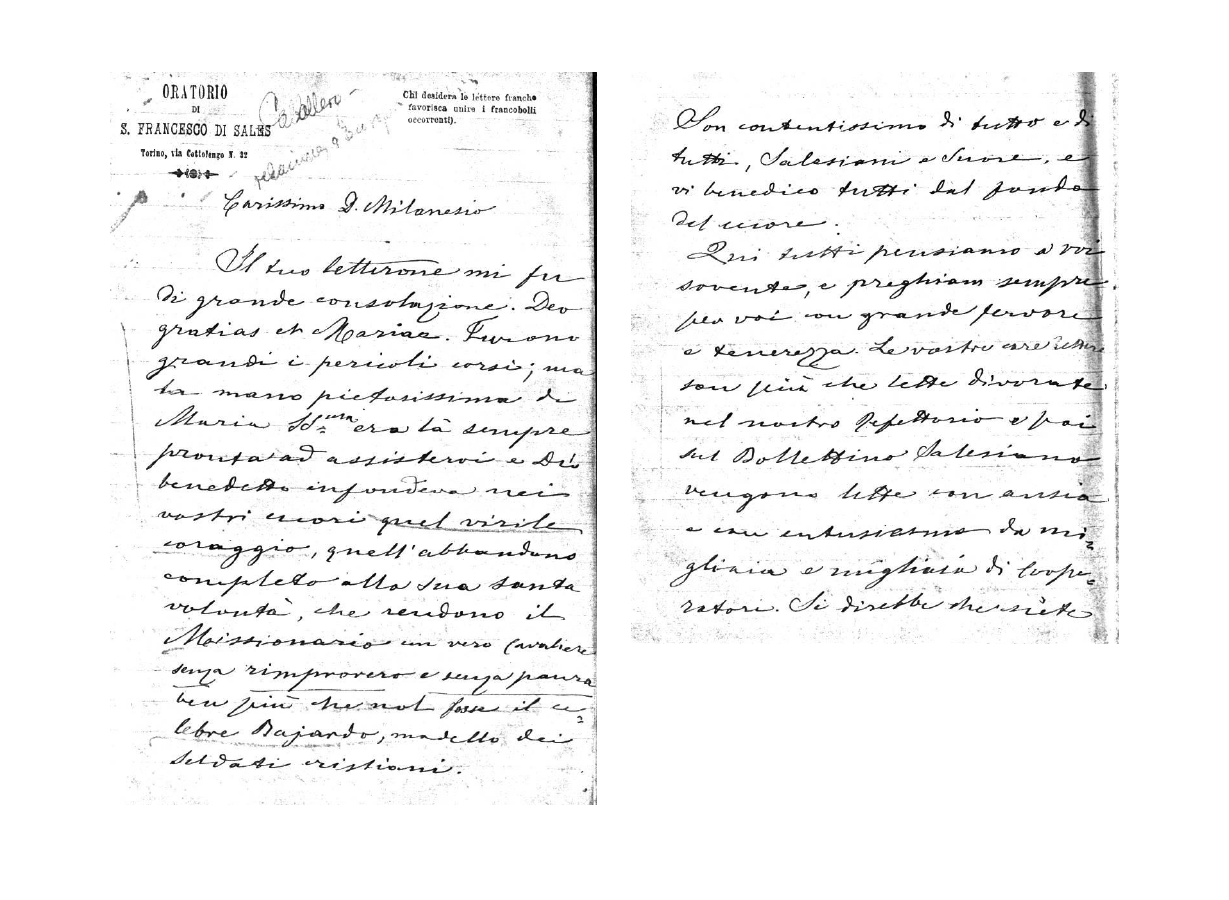 ORATORIO
DI
S. FRANCESCO DI SALES
Torino, via Cottolengo N. 32
Chi desidera le lettere franche
favorisca unire i francobolli
occorrenti).
Cavallero
Carissimo D. Milanesio
Il tuo letterone mi fu
di grande consolazione. Deo
gratias et Mariae. Furono
grandi i pericoli corsi; ma
la mano pietosissima di
Maria SS.ma era là sempre
pronta ad assistervi e Dio
benedetto infondeva nei
vostri cuori quel virile
coraggio, quell'abbandono
completo alla sua santa
volontà, che rendono il
Missionario un vero Cavaliere
senza rimprovero e senza paura
ben più che nol fosse il ce=
lebre Bajardo, modello dei
soldati cristiani.
Son contentissimo di tutto e di
tutti, Salesiani e Suore, e
vi benedico tutti dal fondo
del cuore.
Qui tutti pensiamo a voi
sovente, e preghiam sempre
per voi con grande fervore
e tenerezza. Le vostre care lettere
son più che lette divorate
nel nostro Refettorio e poi
sul Bollettino Salesiano
vengono lette con ansia
e con entusiasmo da mi=
gliaia e migliaia di Coope=
ratori. Si direbbe che siete